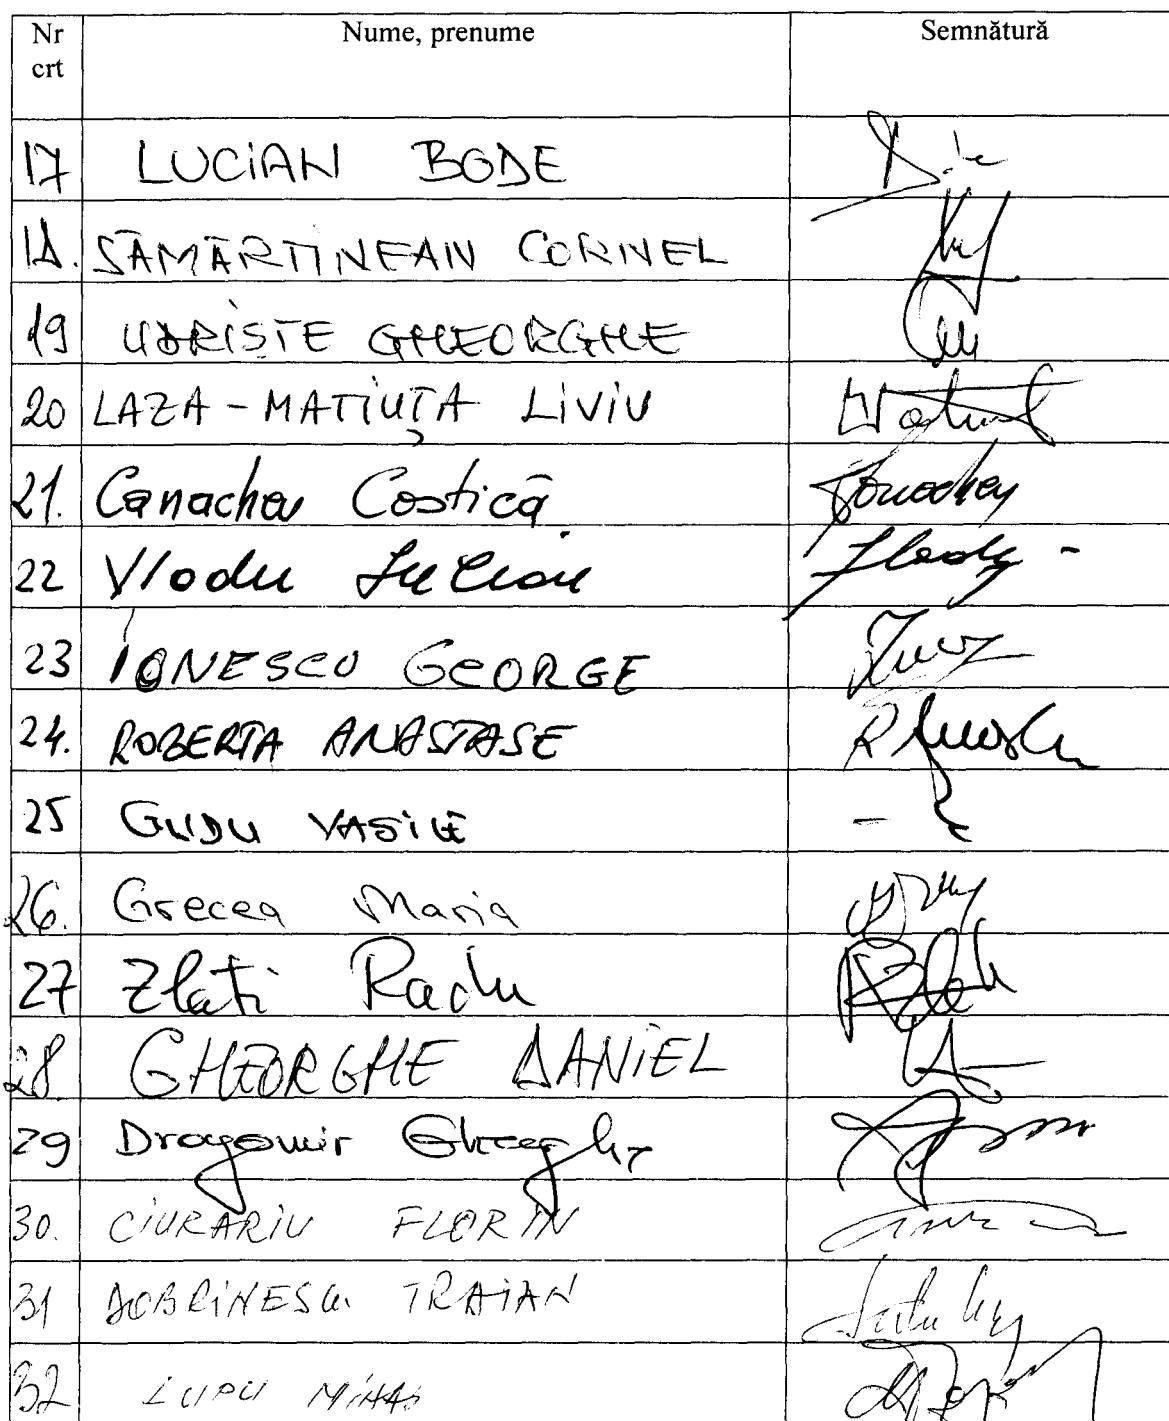 Nr crt Nume, prenume Semnătură
17 LUCIAN BODE
18. SĂMĂRTINEAN CORNEL
19 UDRIȘTE GHEORGHE
20 LAZA-MATIUȚA LIVIU
21. Canacheu Costică
22 Vladu Iulian
23 IONESCU GEORGE
24. ROBERTA ANASTASE
25 GUDU VASILE
26. Grecea Maria
27 Zlati Radu
28. GHEORGHE DANIEL
29 Dragomir Gheorghe
30. CIURARIU FLORIN
31 DOBRINESCU TRAIAN
32 LUPU MIHAI